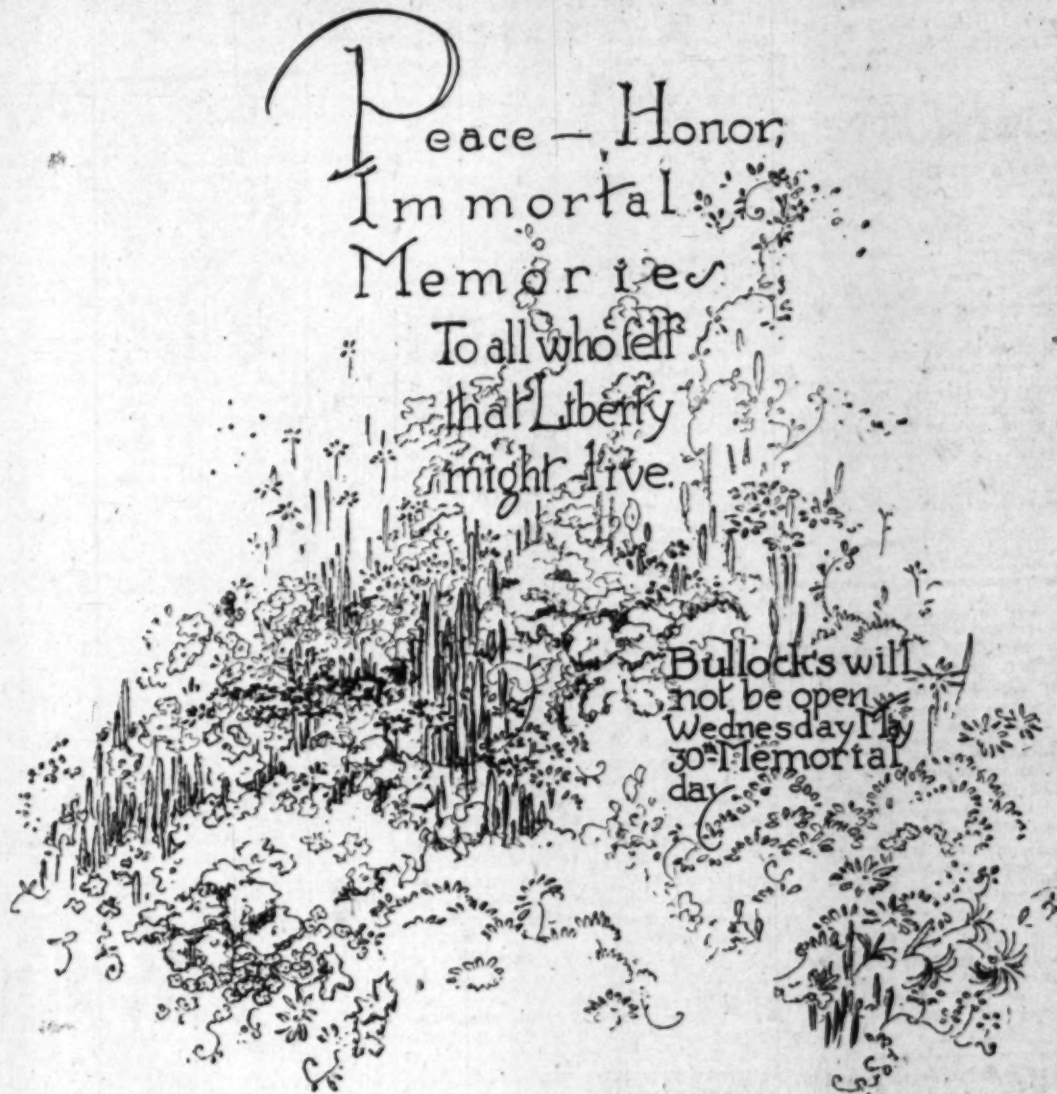 Peace — Honor,
Immortal
Memories
To all who fell
that Liberty
might live.
Bullock's will
not be open
Wednesday May
30th Memorial
day